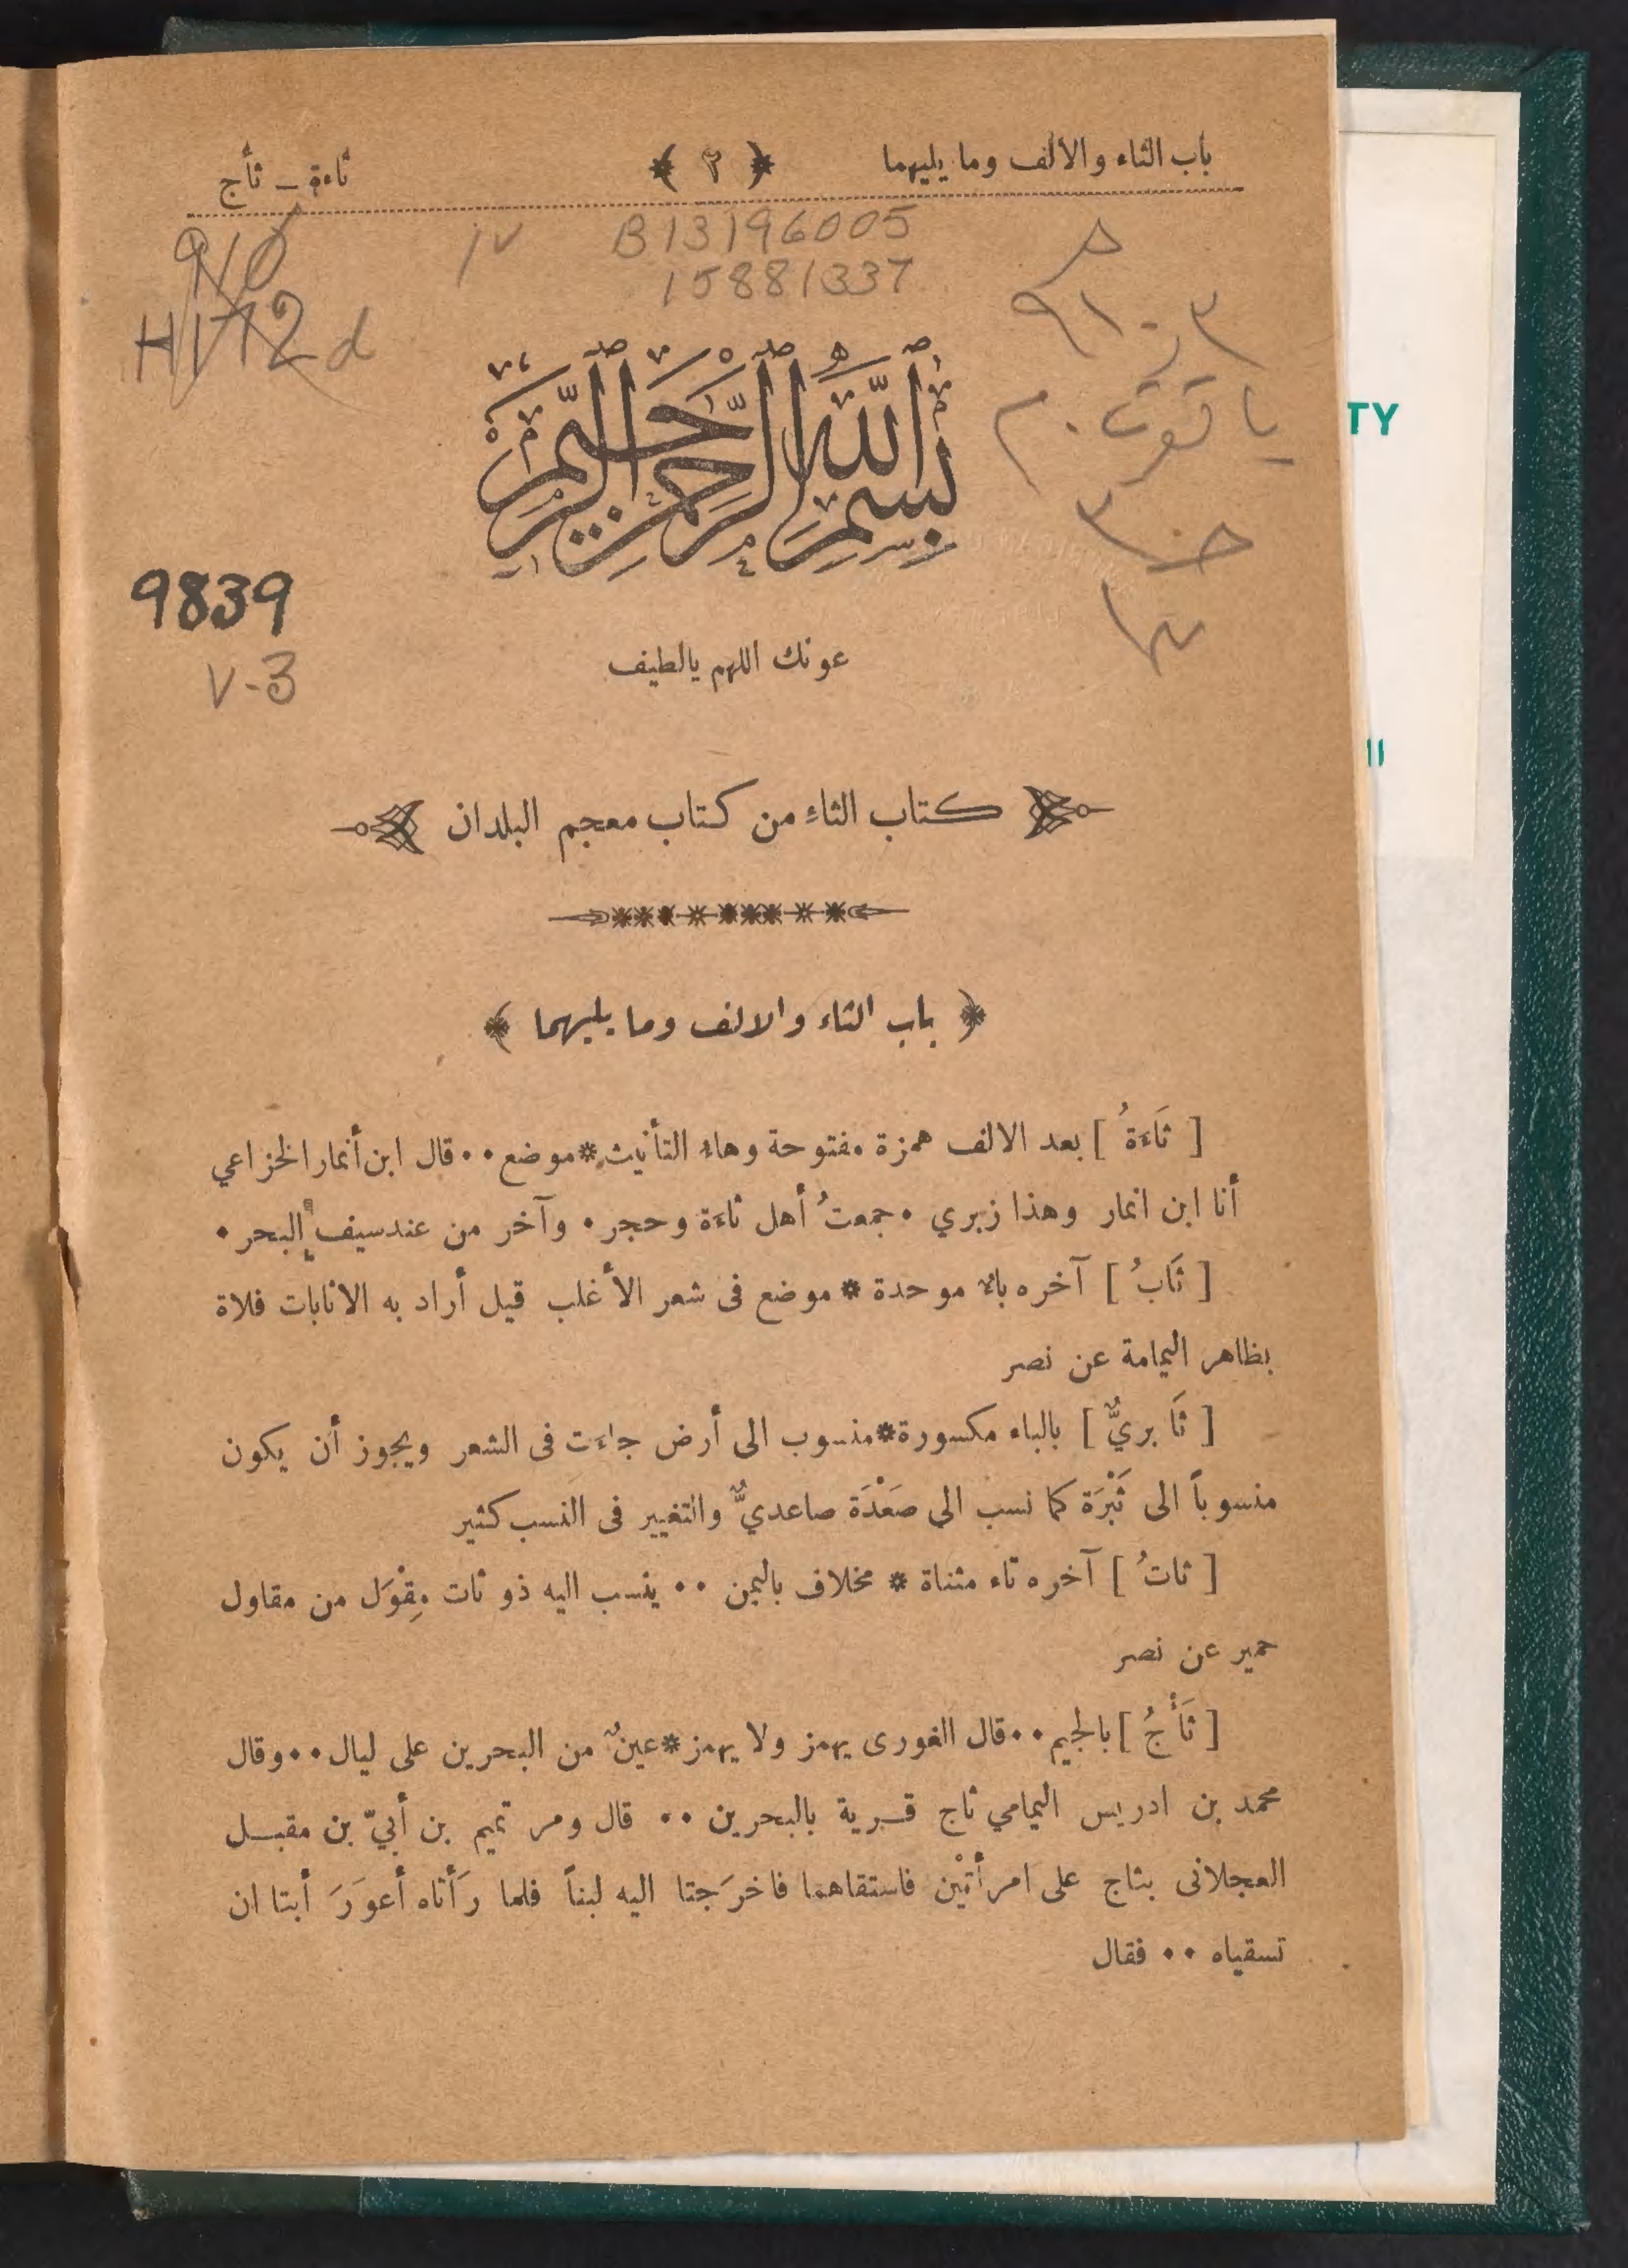 باب الثاء والالف وما يليهما ﴿ ٢ ﴾ ثاءة ـ ثأج
910 ١٧ B13196005
15881337
H172d
٩١٠ر٣
ياقوت ٠ م
ج ٣
بسم الله الرحمن الرحيم
9839
V-3
عونك اللهم يالطيف
كتاب الثاء من كتاب معجم البلدان
﴿ باب الثاء والالف وما يليهما ﴾
[ ثَاءَةُ ] بعد الالف همزة مفتوحة وهاء التأنيث * موضع ٠٠ قال ابن أنمار الخزاعي
أنا ابن انمار وهذا زبري ٠ جمعتُ أهل ثاءة وحجر ٠ وآخر من عند سيف البحر ٠
[ ثَابُ ] آخره باء موحدة * موضع فى شعر الأغلب قيل أراد به الاثابات فلاة
بظاهر اليمامة عن نصر
[ ثَابريٌّ ] بالباء مكسورة * منسوب الى أرض جاءت فى الشعر ويجوز أن يكون
منسوباً الى ثَبْرَة كما نسب الي صَعْدَة صاعديٌّ والتغيير فى النسب كثير
[ ثاتُ ] آخره تاء مثناة * مخلاف باليمن ٠٠ ينسب اليه ذو ثات مِقْوَل من مقاول
حمير عن نصر
[ ثَأْجُ ] بالجيم ٠٠ قال الغورى يهمز ولا يهمز * عينٌ من البحرين على ليال ٠٠ وقال
محمد بن ادريس اليمامي ثاج قرية بالبحرين ٠٠ قال ومر تميم بن أبيّ بن مقبل
العجلانى بثاج على امرأتَيْن فاستقاهما فاخرَجتا اليه لبناً فلما رَأتاه أعوَرَ أبتا ان
تسقياه ٠٠ فقال
TY